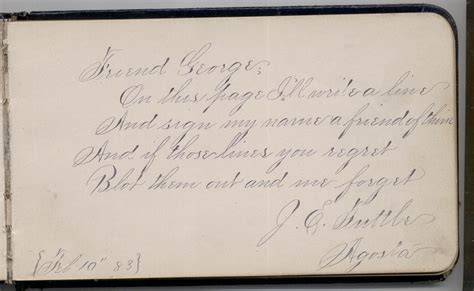 Friend George;
On this page I'll write a line
And sign my name a friend of thine
And if those lines you regret
Blot them out and me forget
J. E. Tuttle
Agosta
{Feb 10" 83}